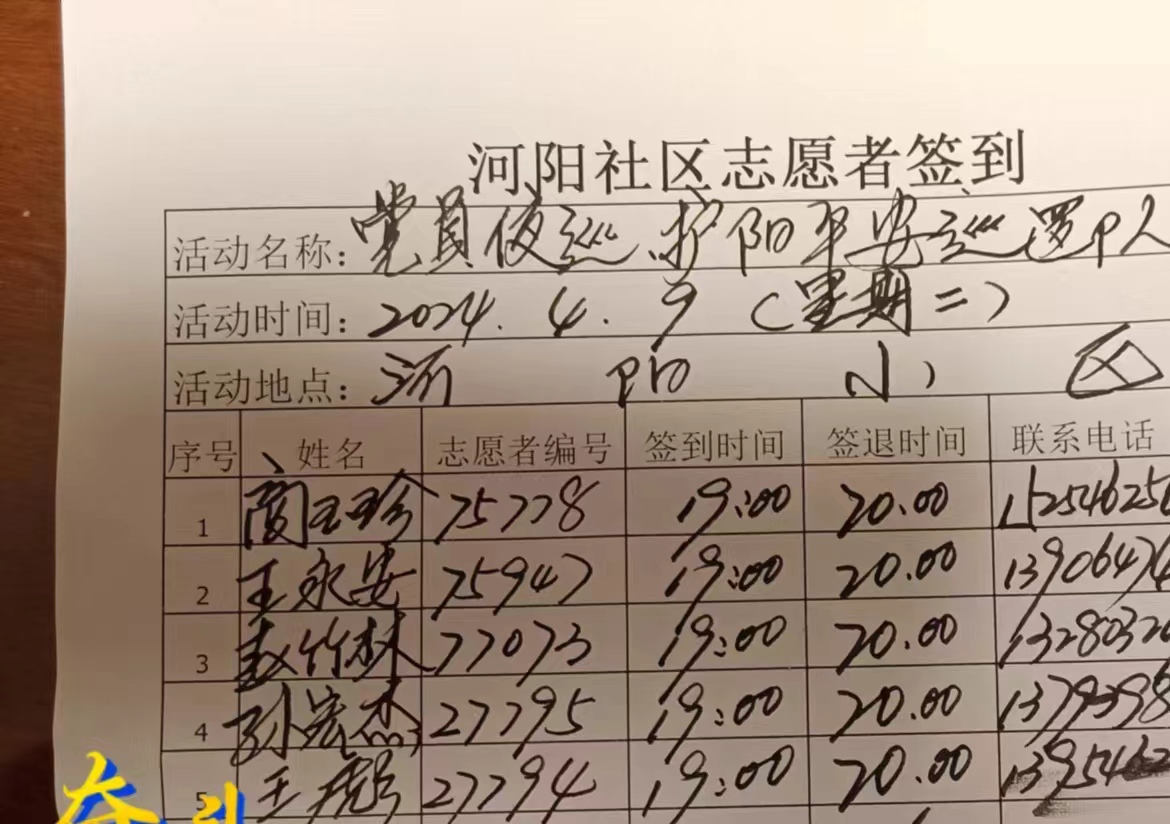 河阳社区志愿者签到
活动名称：党员夜巡.护阳平安巡逻
活动时间：2024.4.9（星期二）
活动地点：河阳小区
序号 姓名 志愿者编号 签到时间 签退时间 联系电话
1 玉珍 75778 19:00 20.00 15254625
2 王永安 75947 19:00 20.00 1390647
3 赵竹林 77073 19:00 20.00 1328032
4 孙宏杰 27795 19:00 20.00 1379398
5 王 27794 19:00 20.00 1395462
奋斗